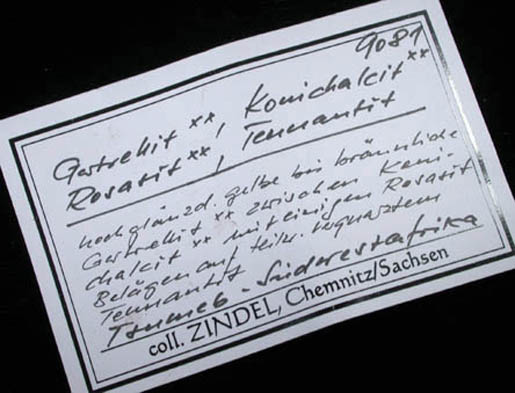 9081
Gartrellit xx, Konichalcit xx
Rosasit xx, Tennantit
hochglänzd. gelbe bis bräunliche
Gartrellit xx zwischen Koni-
chalcit xx mit einigen Rosasit
Belägen auf teilw. verquarztem
Tennantit
Tsumeb - Südwestafrika
coll. ZINDEL, Chemnitz/Sachsen